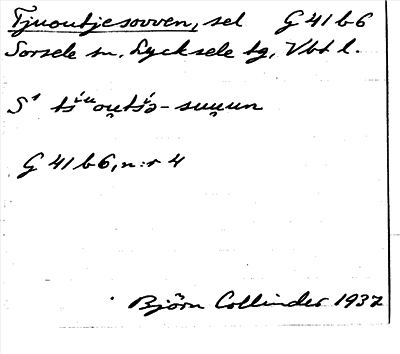 Tjuoutjesovven, sel G 41 b 6
Sorsele sn. Lycksele lg, Vbt l.
S¹ tśᵘou̯tśə-suu̯un
G 41 b 6, n:r 4
Björn Collinder 1937